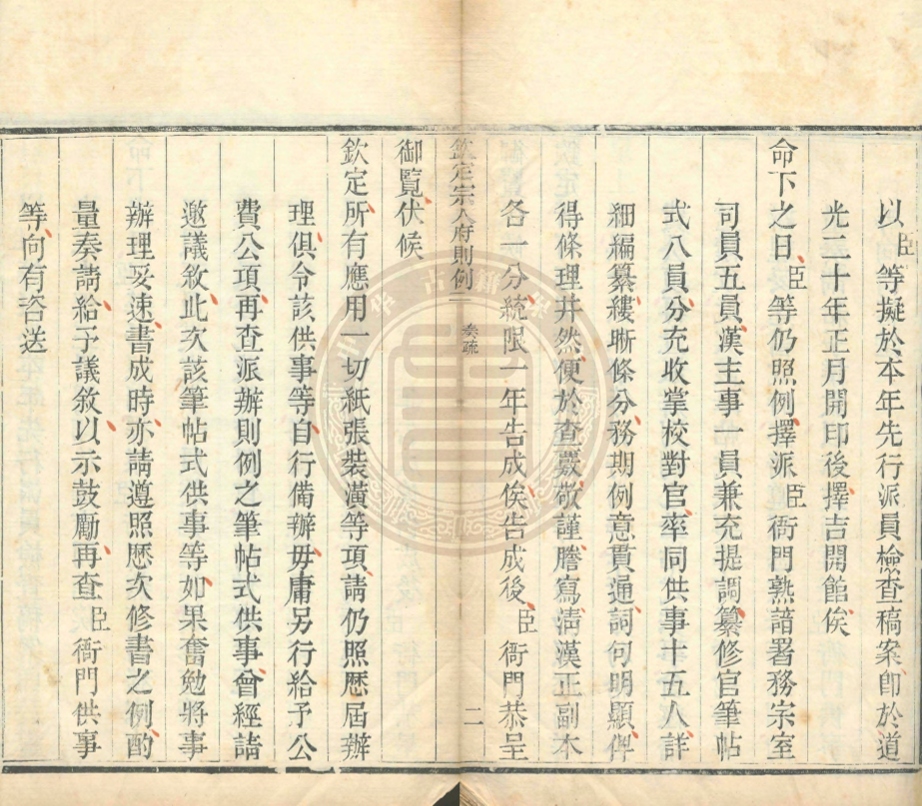 以臣等擬於本年先行派員檢查稿案卽於道
光二十年正月開印後擇吉開館俟
命下之日臣等仍照例擇派臣衙門熟諳署務宗室
司員五員漢主事一員兼充提調纂修官筆帖
式八員分充收掌校對官率同供事十五人詳
細編纂縷晰條分務期例意貫通詞句明顯俾
得條理井然便於查覈敬謹謄寫淸漢正副本
各一分統限一年告成俟告成後臣衙門恭呈
欽定宗人府則例二 奏疏 二
御覽伏候
欽定所有應用一切紙張裝潢等項請仍照歷屆辦
理俱令該供事等自行備辦毋庸另行給予公
費公項再查派辦則例之筆帖式供事曾經請
邀議敘此次該筆帖式供事等如果奮勉將事
辦理妥速書成時亦請遵照歷次修書之例酌
量奏請給予議敘以示鼓勵再查臣衙門供事
等向有咨送